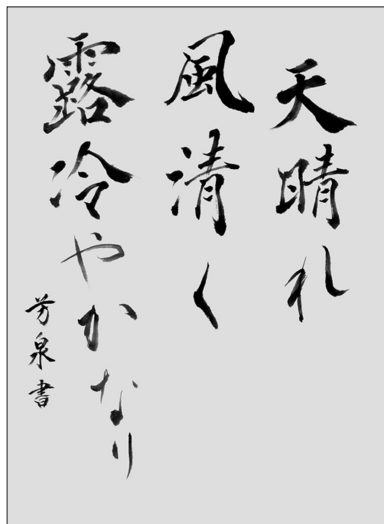 天晴れ
風清く
露冷やかなり
芳泉書